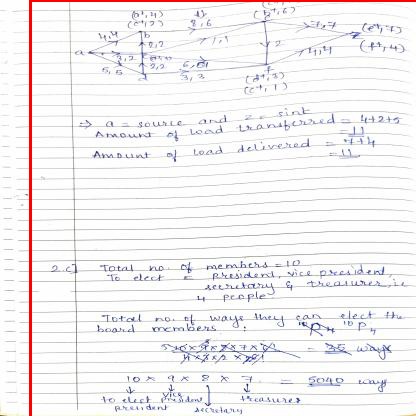 (a⁺,4)
(c⁺,2)
b
4,4
8,6
1,1
7,7
(e⁺,7)
(f⁺,4)
a
3,2
2,2
2
4,4
5,5
3,3
f
(d⁺,3)
(c⁺,1)
⇒ a = source and z = sint
Amount of load transferred = 4+2+5
= 11
Amount of load delivered = 7+4
= 11
2.c] Total no. of members = 10
To elect = president, vice president,
secretary & treasurer, i.e
4 people
Total no. of ways they can elect the
board members : ¹⁰P₄
= 35 ways
10 × 9 × 8 × 7 = 5040 ways
to elect president vice president secretary treasurer